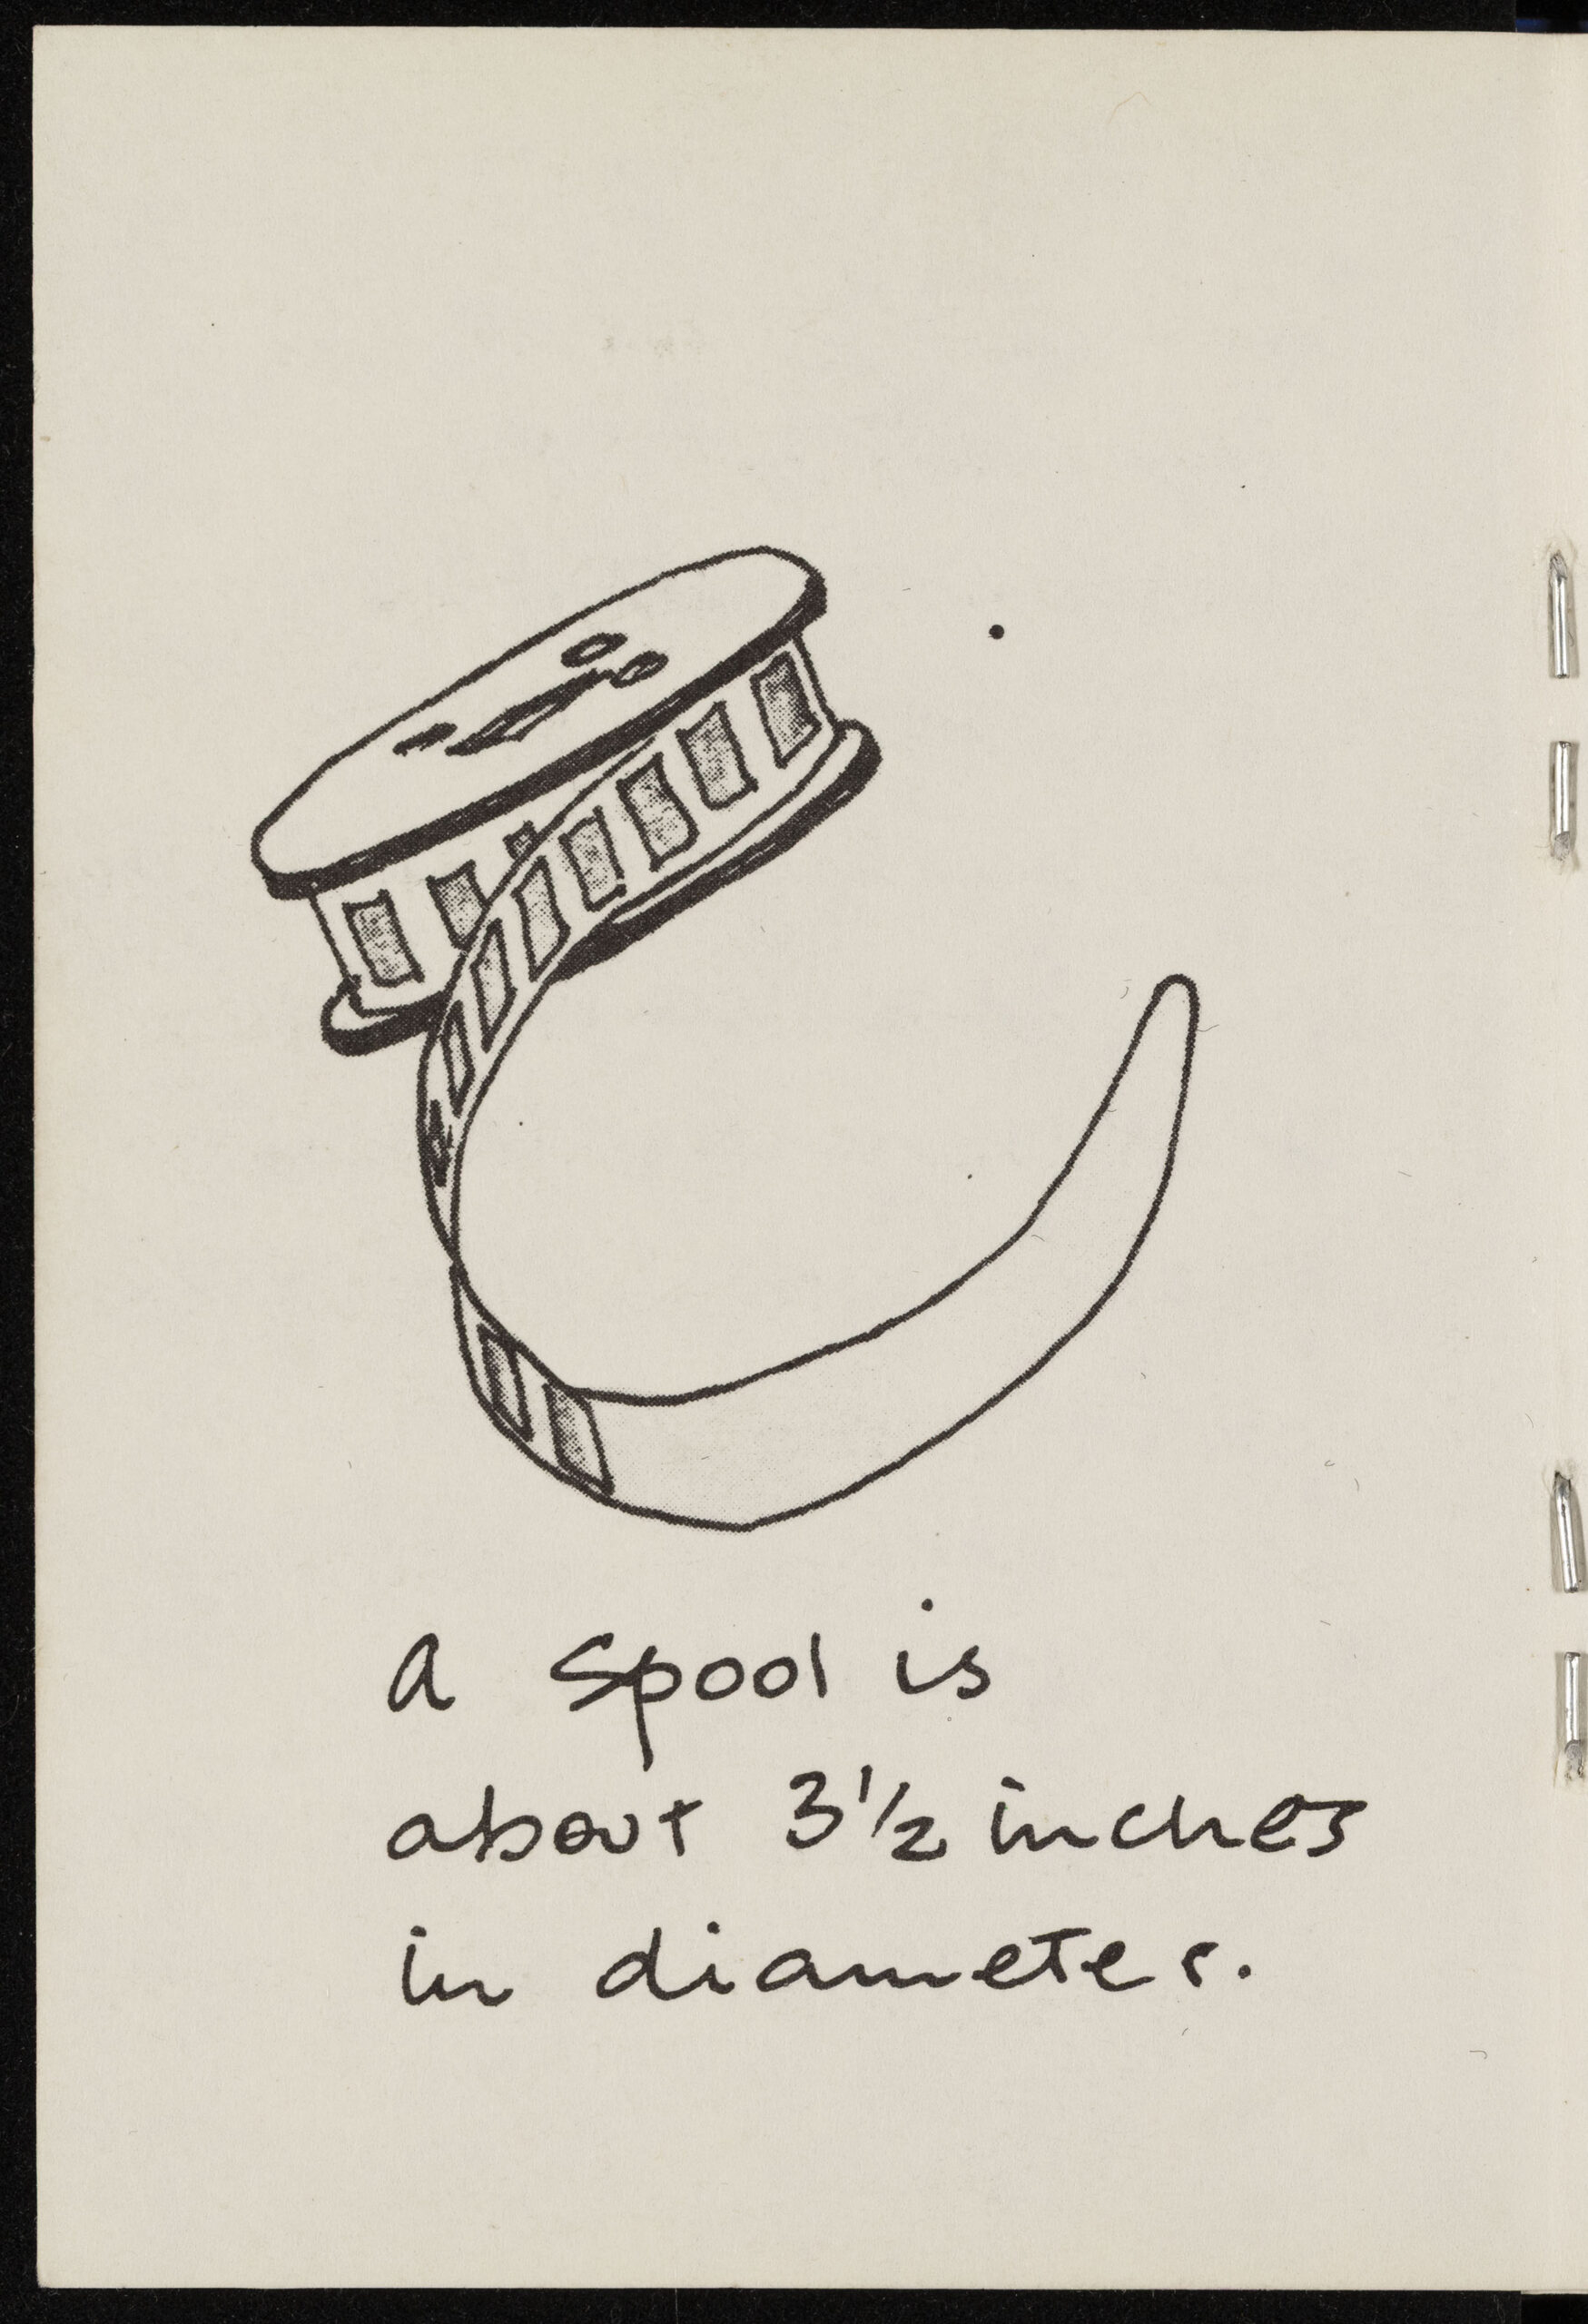 a spool is
about 3½ inches
in diameter.